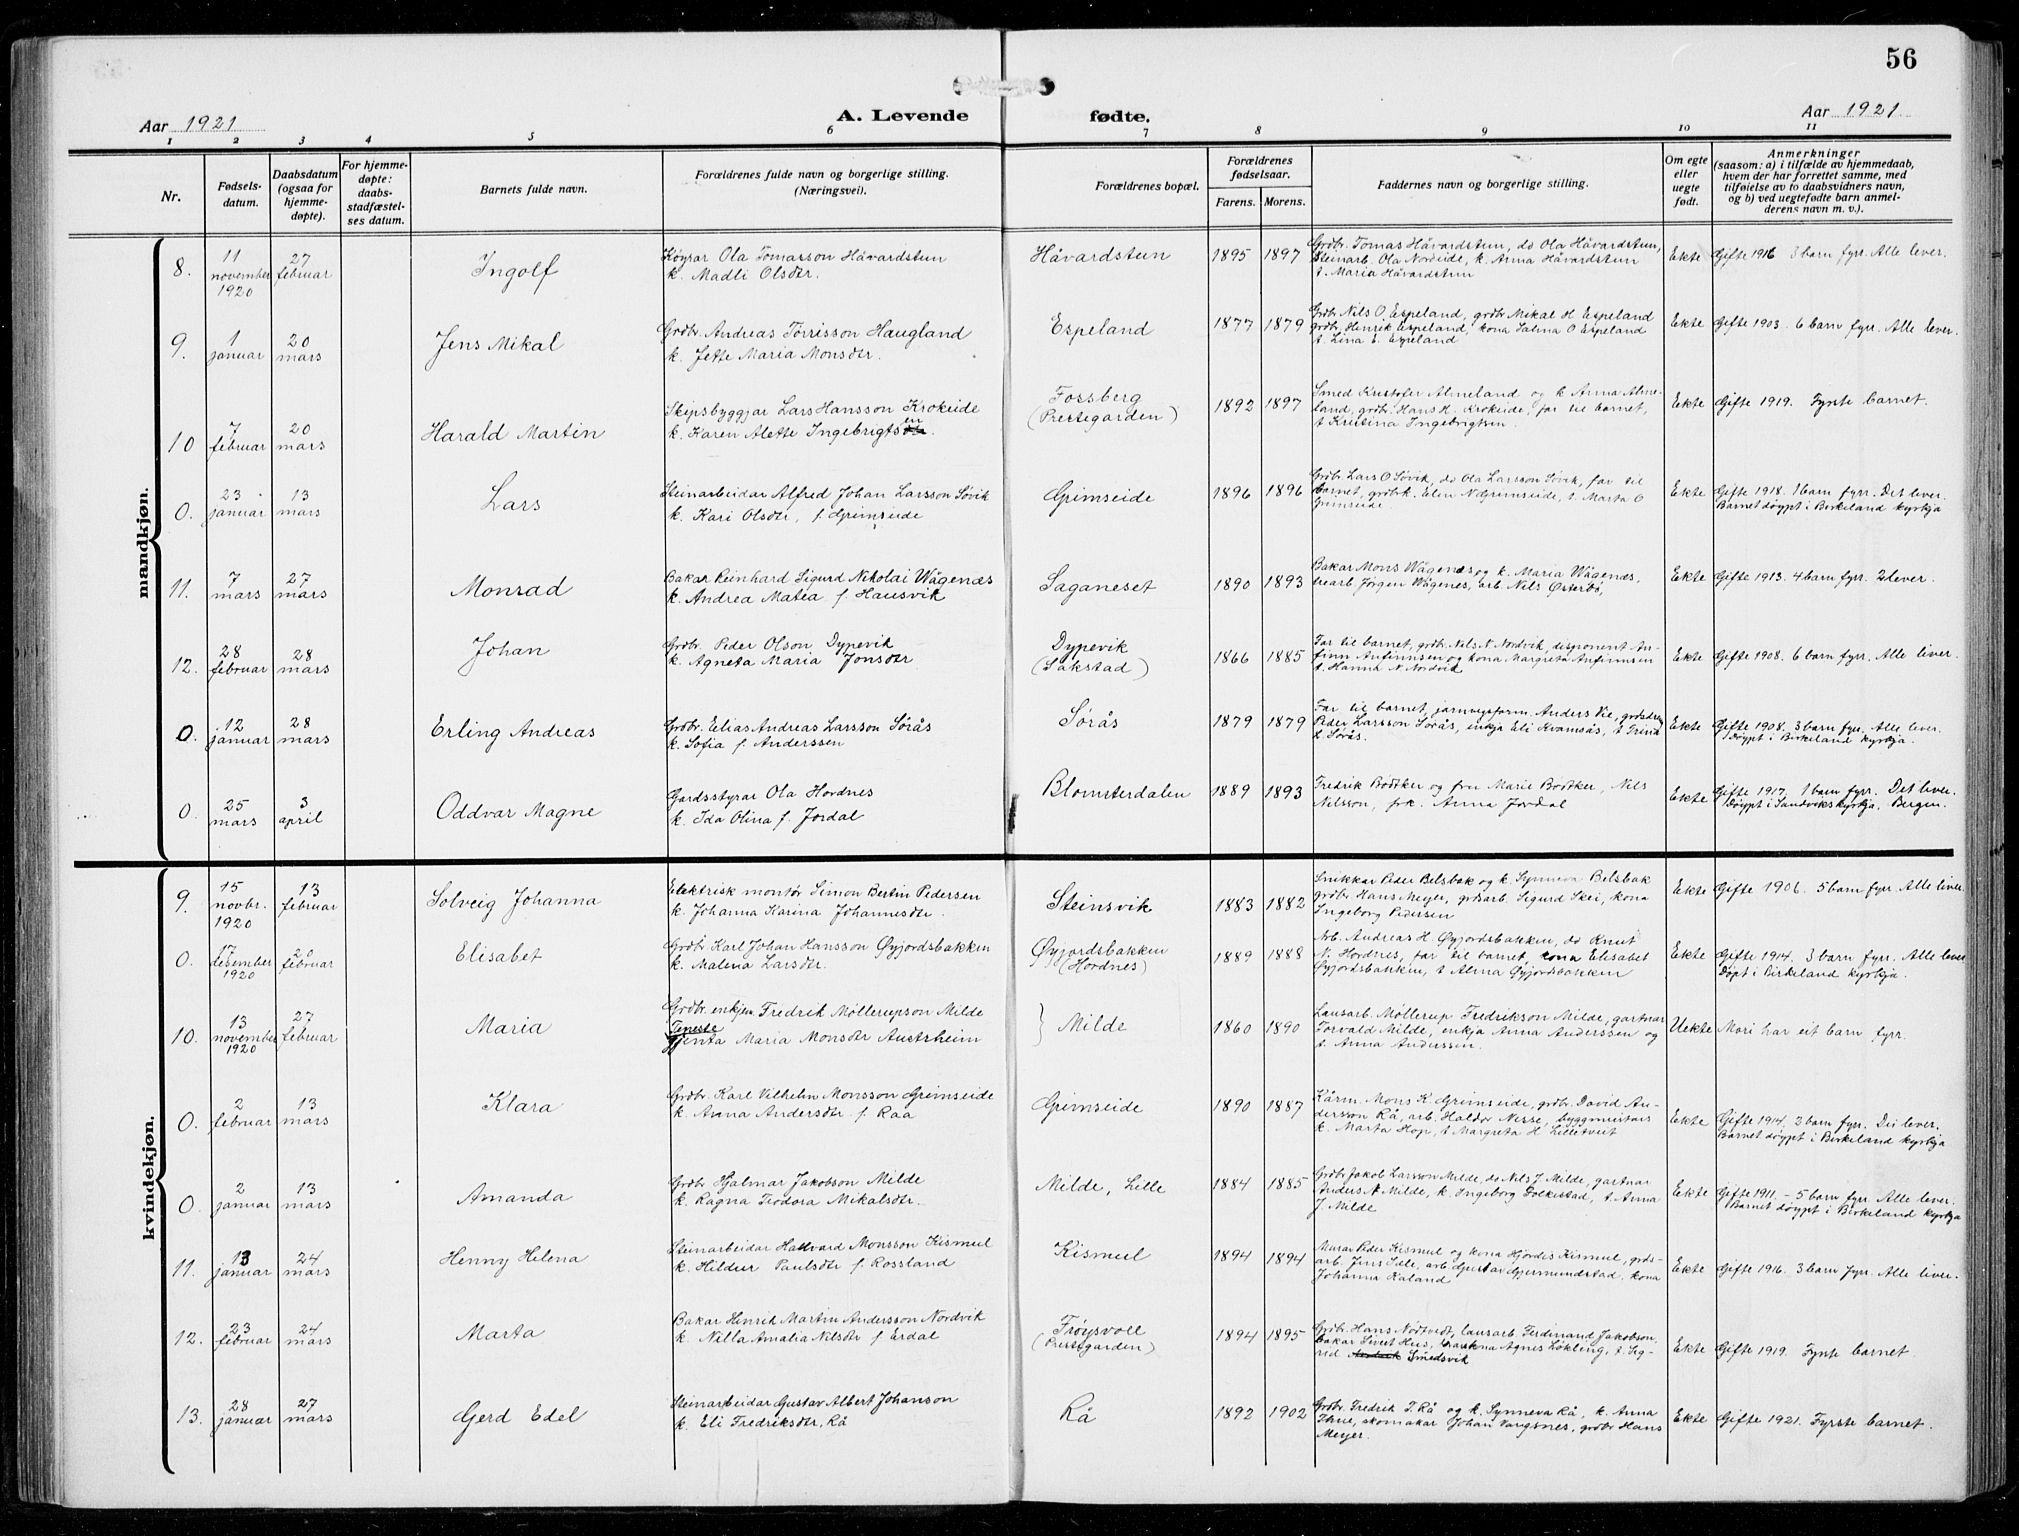 56
Aar 1921
A. Levende fødte.
Aar 1921
1 2 3 4 5 6 7 8 9 10 11
Nr.
Fødsels-
datum.
Daabsdatum
(ogsaa for
hjemme-
døpte).
For hjemme-
døpte:
daabs-
stadfæstel-
ses datum.
Barnets fulde navn.
Forældrenes fulde navn og borgerlige stilling.
(Næringsvei).
Forældrenes bopæl.
Forældrenes
fødselsaar.
Farens. Morens.
Faddernes navn og borgerlige stilling.
Om egte
eller
uegte
født.
Anmerkninger
(saasom: a) i tilfælde av hjemmedaab,
hvem der har forrettet samme, med
tilføielse av to daabsvidners navn,
og b) ved uegtefødte barn anmel-
derens navn m. v.).
mandkjøn.
8.
11
november
1920
27
februar
Ingolf
Køyrar Ola Tomasson Håvardstun
k. Madli Olsdtr.
Håvardstun
1895 1897
Grdbr. Tomas Håvardstun, do Ola Håvardstun,
Steinarb. Ola Nordeide, k. Anna Håvardstun
t. Maria Håvardstun
Ekte
Gifte 1916 3 barn fyrr. Alle lever.
9.
1
januar
20
mars
Jens Mikal
Grdbr. Andreas Tørrisson Haugland
k. Jette Maria Monsdtr.
Espeland
1877 1879
Grdbr. Nils O. Espeland, grdbr. Mikal H Espeland
grdbr. Henrik Espeland, kona Salina O Espeland
t. Lina E. Espeland
Ekte
Gifte 1903. 6 barn fyrr. Alle lever.
10
7
februar
20
mars
Harald Martin
Skipsbyggjar Lars Hansson Krokeide
k. Karen Alette Ingebrigtsen.
Fossberg
(Prestegarden)
1892 1897
Smed Kristofer Almeland og k Anna Alme-
land, grdbr. Hans H. Krokeide, far til barnet,
t Kristina Ingebrigtsen.
Ekte
Gifte 1919. Fyrste barnet.
0.
23
januar
13
mars
Lars
Steinarbeidar Alfred Johan Larsson Søvik
k. Kari Olsdtr, f. Grimseide
Grimseide
1896 1896
Grdbr. Lars O Søvik, do Ola Larsson Søvik, far til
barnet, grdbrk. Elen N Grimseide, t. Marta O
Grimseide.
Ekte
Gifte 1918. 1 barn fyrr. Det lever.
Barnet døypt i Birkeland kyrkja
11.
7
mars
27
mars
Monrad
Bakar Reinhard Sigurd Nikolai Vågenæs
k. Andrea Matea f. Hausvik
Saganeset
1890 1893
Bakar Mons Vågenæs og k. Maria Vågenæs,
trearb. Jørgen Vågenes, arb. Nils Østerbø,
Ekte
Gifte 1913. 4 barn fyrr. 2 lever.
12.
28
februar
28
mars
Johan
Grdbr. Peder Olson Dypevik
k. Agneta Maria Jonsdtr
Dypevik
(Søkstad)
1866 1885
Far til barnet, grdbr. Nils N. Nordvik, disponent An-
finn Anfinnsen og kona Margreta Anfinnsen
t. Hanna N Nordvik
Ekte
Gifte 1908. 6 barn fyrr. Alle liver.
0.
12
januar
28
mars
Erling Andreas
Grdbr. Elias Andreas Larsson Sørås
k. Sofia f. Anderssen
Sørås
1879 1879
Far til barnet, jarnvegsform. Anders Vie,
Peder Larsson Sørås, enkja Eli Kvamsås, t Trina
t. Sørås.
Ekte
Gifte 1908. 3 barn fyrr. Alle lever.
Døypt i Birkeland kyrkja.
0.
25
mars
3
april
Oddvar Magne
Gardsstyrar Ola Hordnes
k. Ida Olina f. Jordal
Blomsterdalen
1889 1893
Fredrik Bødtker og fru Marie Bødtker, Nils
Nilsson, frk. Anna Jordal
Ekte
Gifte 1917. 1 barn fyrr. Det lever.
Døypt i Sandvikskyrkja, Bergen.
kvindekjøn.
9.
15
novbr.
1920
13
februar
Solveig Johanna
Elektrisk montør Simon Bertin Pedersen
k. Johanna Karina Johannesdtr.
Steinsvik
1883 1882
Snikkar Peder Belsbak og k. Synneva Belsbak
grdbr Hans Meyer, grdsarb. Sigurd Skei, kona
Ingeborg Pedersen
Ekte
Gifte 1906. 5 barn fyrr. Alle liver.
0.
17
desember
1920
20
februar
Elisabet
Grdbr Karl Johan Hansson Øyjordsbakken
k. Malena Larsdtr.
Øyjordsbakken
(Hordnes)
1889 1888
Arb. Andreas H. Øyjordsbakken, do Knut
N. Hordnes, far til barnet, kona Elisabet
Øyjordsbakken, t Alma Øyjordsbakken
Ekte
Gifte 1914. 3 barn fyrr. Alle lever
Døpt i Birkeland kyrkja.
10.
13
november
1920
27
februar
Maria
Grdbr. enkjem. Fredrik Møllerupson Milde
Teneste
gjenta Maria Monsdtr Austrheim
Milde
1860 1890
Lausarb. Møllerup Fredrikson Milde, gartnar
Torvald Milde, enkja Anna Anderssen og
t. Anna Anderssen.
Uekte
Mori har eit barn fyrr.
0.
2
februar
13
mars
Klara
Grdbr. Karl Vilhelm Monsson Grimseide
k. Anna Andersdtr f. Raa
Grimseide
1890 1887
Kårm. Mons K. Grimseide, grdbr. David An-
dersson Rå, arb. Haldor Nesse, byggmeistar
k. Marta Hop, t Margreta H Lilletveit
Ekte
Gifte 1914. 2 barn fyrr. Dei lever.
Barnet døypt i Birkeland kyrkja
0.
2
januar
13
mars
Amanda
Grdbr Hjalmar Jakobson Milde
k. Ragna Teodora Mikalsdtr.
Milde, Lille
1884 1885
Grdbr Jakob Larsson Milde, do Nils J. Milde, gartnar
Anders N. Milde, k. Ingeborg Folkestad, t. Anna
J. Milde
Ekte
Gifte 1911. - 5 barn fyrr Alle lever.
Barnet døypt i Birkeland kyrkja
11.
13
januar
24
mars
Henny Helena
Steinarbeidar Hallvard Monsson Kismul
k. Hildur Paulsdtr f. Rossland
Kismul
1894 1894
Murar Peder Kismul og kona Hjördis Kismul, grds-
arb. Jens Lille, arb Gustav Gjermundstad, kona
Johanna Kaland
Ekte
Gifte 1916. 3 barn fyrr. Alle liver.
12.
23
februar
24
mars
Marta
Bakar Hinrik Martin Andersson Nordvik
k. Nilla Amalia Nilsdtr f. Erdal
Frøysvoll
(Prestegarden)
1894 1895
Grdbr. Hans Nødtvedt, lausarb. Ferdinand Jakobson,
bakar Sivert Hus, Agnes Løkling, t. Sig-
rid Smedsvik
Ekte
Gifte 1919. Fyrste barnet.
13.
28
januar
27
mars
Gerd Edel
Steinarbeidar Gustav Albert Johanson
k. Eli Fredriksdtr, Rå
Rå
1892 1902
Grdbr. Fredrik J. Rå og k. Synneva Rå, k. Anna
Thue, skomakar Johan Vangsnes, grdbr Hans
Meyer.
Ekte
Gifte 1921. Fyrste barnet.